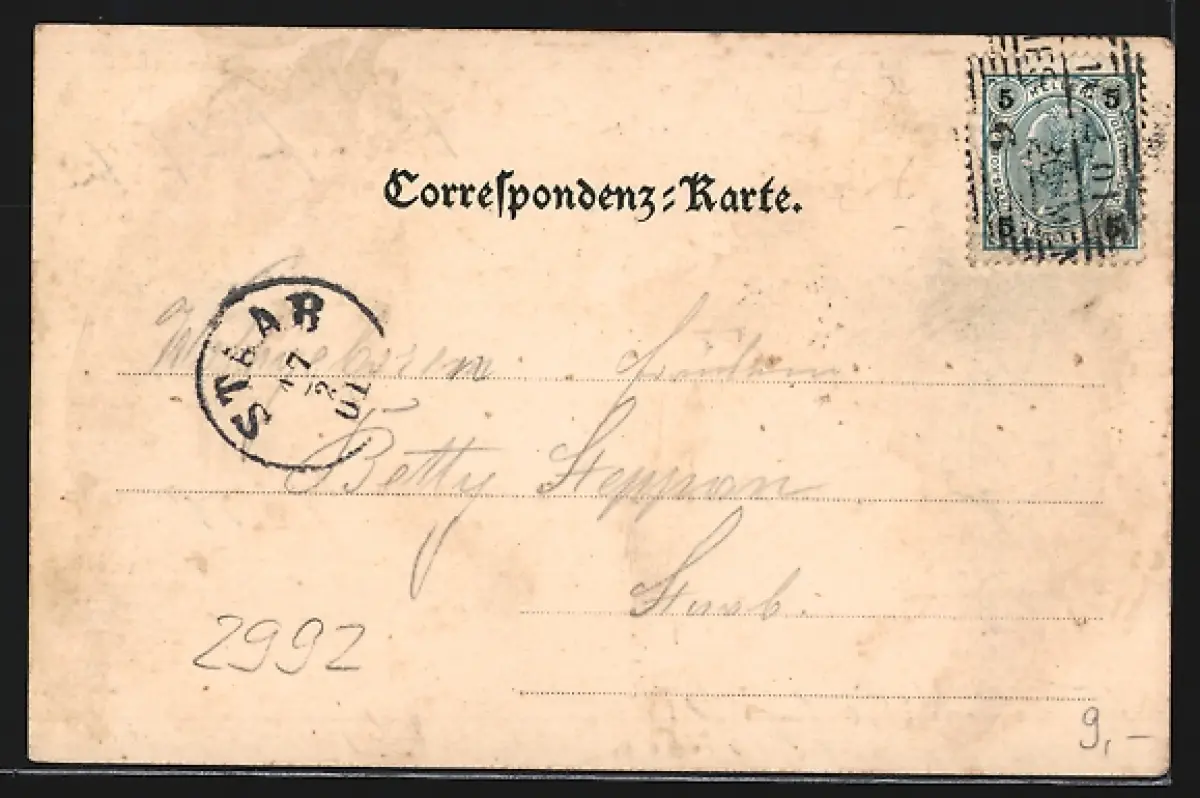 5 5
5 5
Correspondenz-Karte.
STAAB
17
2
01
Wohlgeboren Fräulein
Betty Steppan
Staab.
2992
9,-